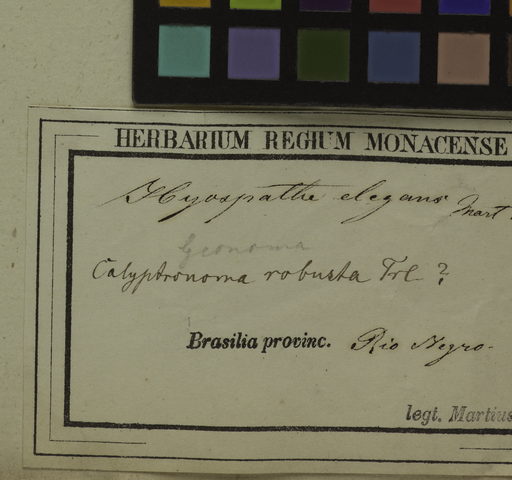 HERBARIUM REGIUM MONACENSE
Hyospathe elegans Mart
Geonoma
Calyptronoma robusta Trl ?
Brasilia provinc. Rio Negro.
legt. Martius